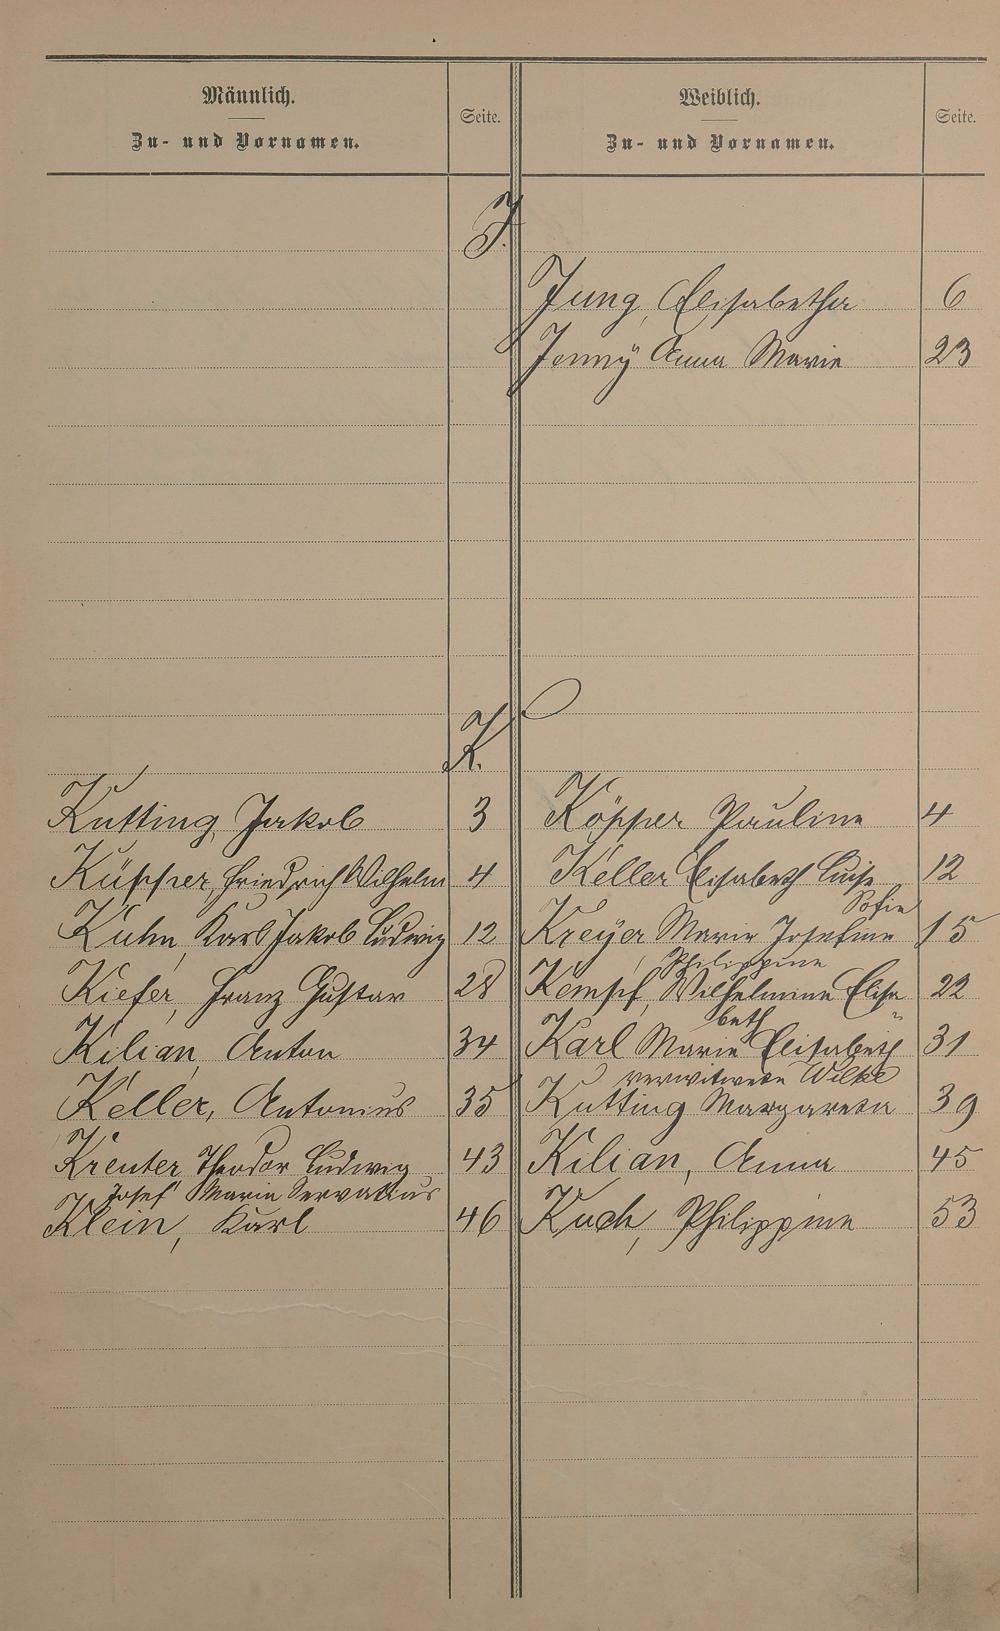 Männlich.
Zu- und Vornamen.
Seite.
Weiblich.
Zu- und Vornamen.
Seite.
J.
Jung, Elisabetha 6
Jenny Anna Marie 23
K.
Kutting Jakob 3 Köpper Pauline 4
Küpper, Friedrich Wilhelm 4 Keller Elisabeth Luise 12
Sofie
Kuhn, Karl Jakob Ludwig 12 Kreyer Marie Josefine 15
Philippine
Kiefer, Franz Gustav 28 Kempf, Wilhelmine Elisa 22
beth
Kilian, Anton 34 Karl Marie Elisabeth 31
verwitwete Wilke
Keller, Antonius 35 Kutting Margareta 39
Kreuter Theodor Ludwig 43 Kilian, Anna 45
Josef Maria Servatius
Klein, Karl 46 Kuch, Philippine 53